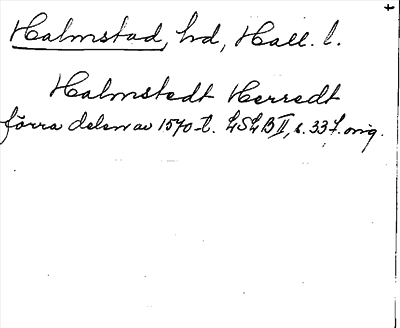 Halmstad, hd, Hall. l.
Halmstedt Herredt
förra delen av 1570-t. LSLB II, s. 337. orig.